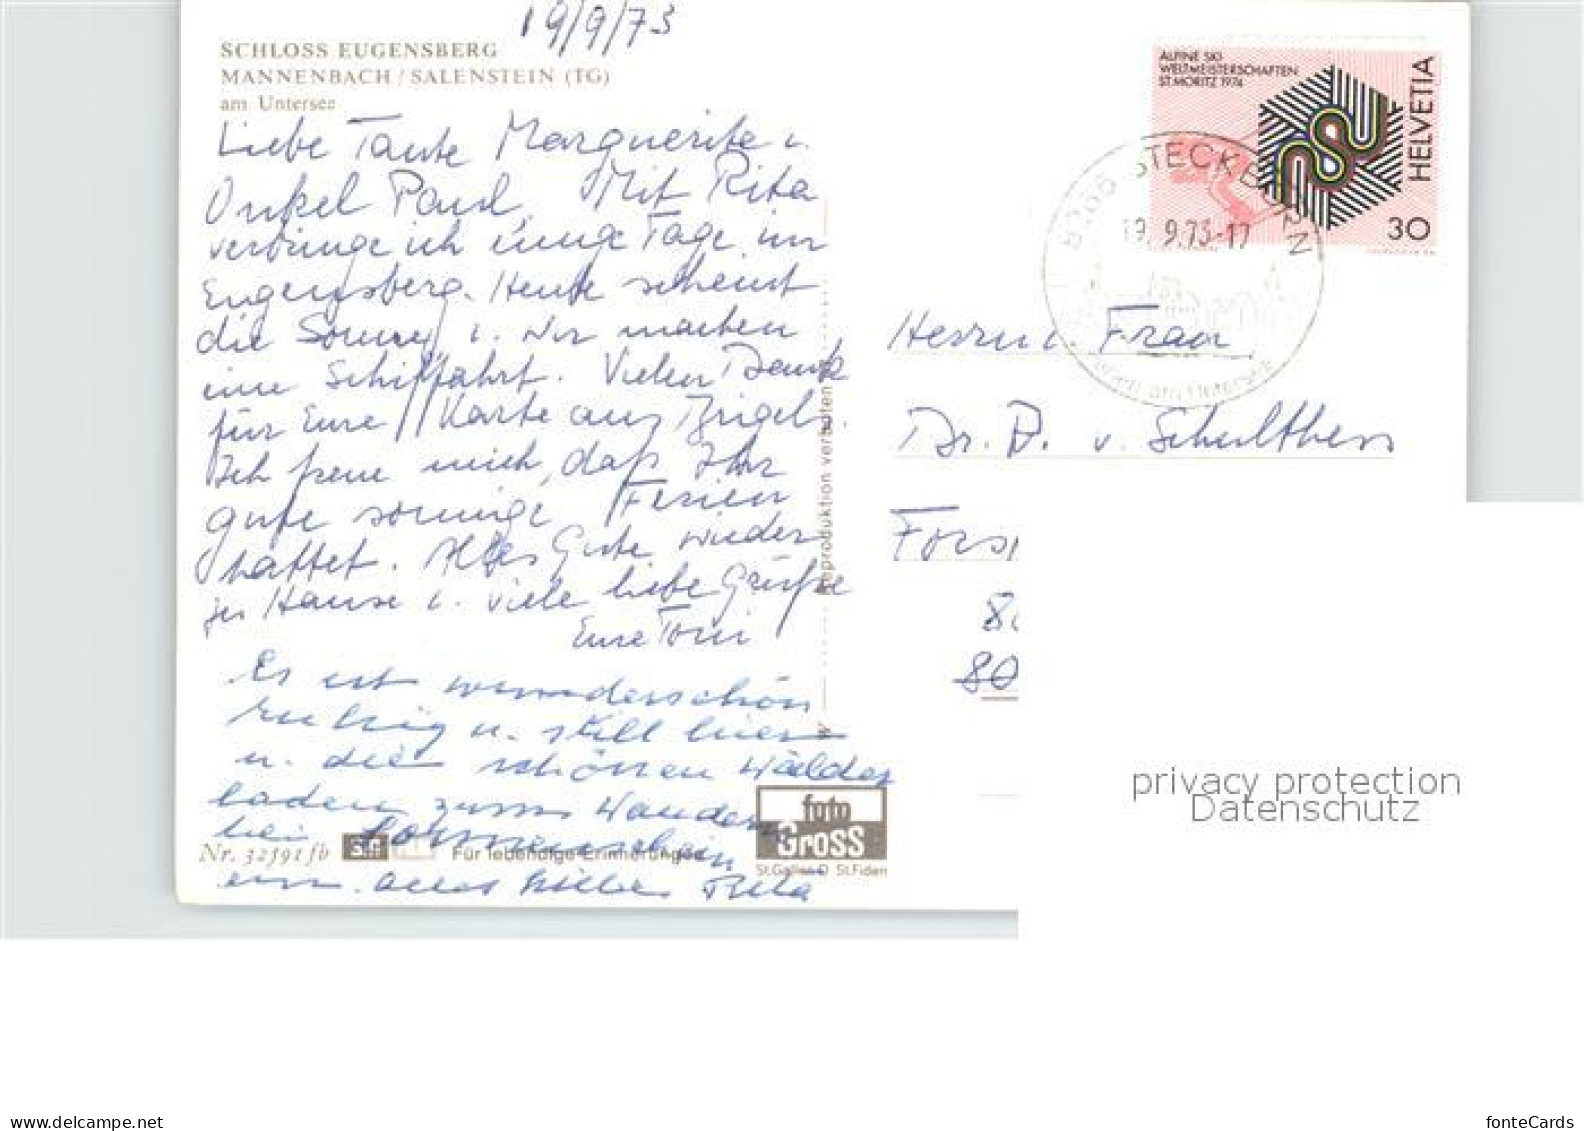 19/9/73
SCHLOSS EUGENSBERG
MANNENBACH / SALENSTEIN (TG)
am Untersee
Liebe Tante Marguerite u.
Onkel Paul, Mit Rita
verbringe ich einige Tage im
Eugensberg. Heute scheint
die Sonne u. wir machen
eine Schiffahrt. Vielen Dank
für Eure Karte aus Brigels.
Ich freue mich, daß Ihr
gute sonnige Ferien
hattet. Alles Gute wieder
zu Hause u. viele liebe Grüße
Eure Toni
Es ist wunderschön
ruhig u. still hier
u. die schönen Wälder
laden zum Wandern
bei Sonnenschein
ein. Alles Liebe Rita
Nr. 32591 fb
Für lebendige Erinnerungen
foto
Gross
St.Gallen O St.Fiden
Reproduktion verboten
ALPINE SKI
WELTMEISTERSCHAFTEN
ST. MORITZ 1974
HELVETIA
30
STECKBORN
19. 9. 73-17
Herrn u. Frau
Dr. P. v. Schulthess
Fors
80
privacy protection
Datenschutz
www.delcampe.net
fonteCards